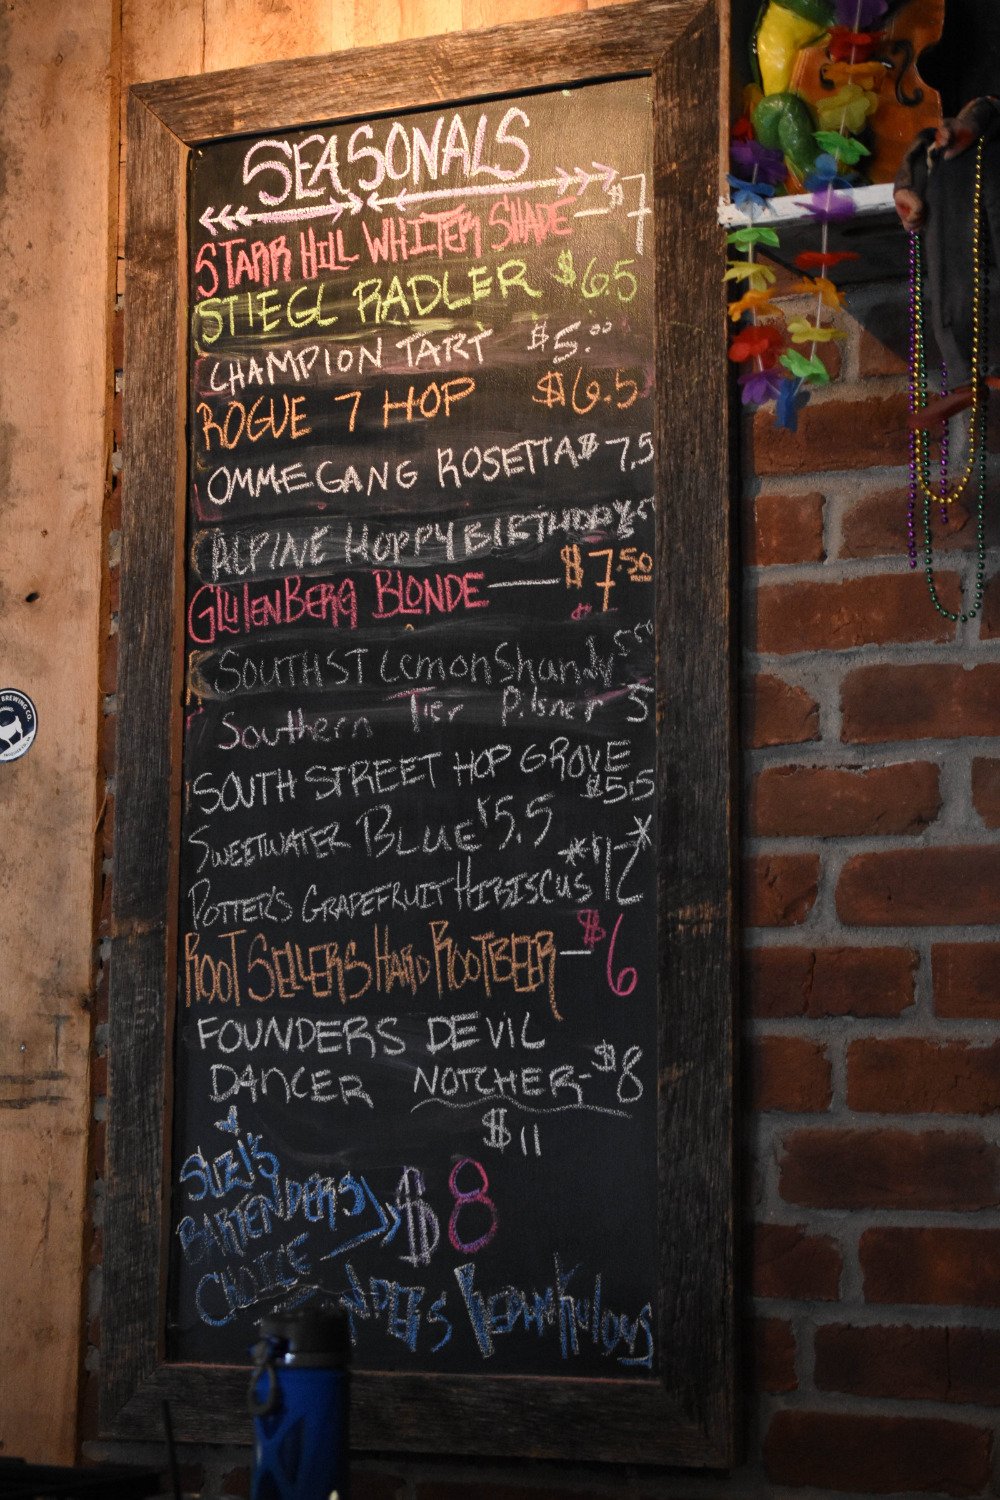 SEASONALS
STARR HILL WHITER SHADE — $7
STIEGL RADLER $6.5
CHAMPION TART $5.00
ROGUE 7 HOP $6.5
OMMEGANG ROSETTA $7.5
ALPINE HOPPY BIRTHDAY
GLUTENBERG BLONDE — $7.50
SOUTH ST LemonShandy 5.50
Southern Tier Pilsner 5
SOUTH STREET HOP GROVE
$5.5
SWEETWATER BLUE $5.5
POTTER'S GRAPEFRUIT HIBISCUS *$12*
ROOT SELLERS HARD ROOTBEER — $6
FOUNDERS DEVIL
DANCER NOTCHER- $8
$11
SUZI'S
BARTENDERS $8
CHOICE
REDANKULOUS
BREWING CO.